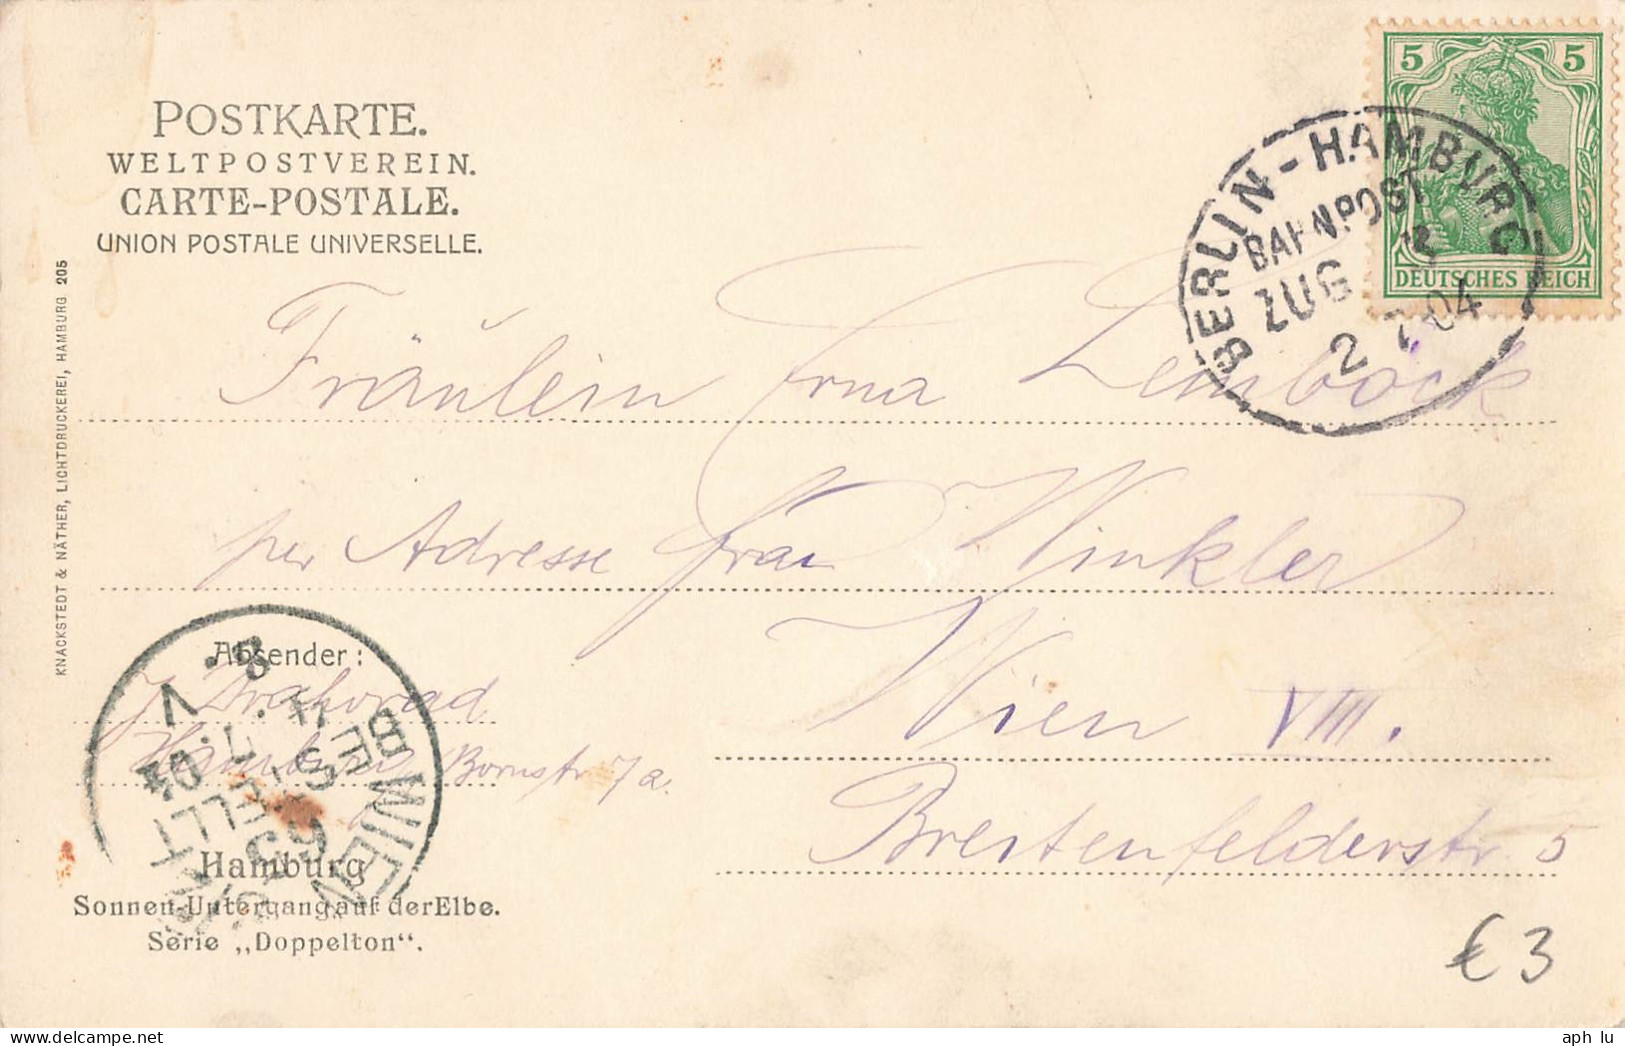 POSTKARTE.
WELTPOSTVEREIN.
CARTE-POSTALE.
UNION POSTALE UNIVERSELLE.
KNACKSTEDT & NÄTHER, LICHTDRUCKEREI, HAMBURG 205
5 5
DEUTSCHES REICH
BERLIN-HAMBURG
BAHNPOST
ZUG
2 7.04
Fräulein Erna Lemböck
per Adresse Frau Winkler
Wien VIII.
Breitenfelderstr. 5
Absender:
Hamburg Bornstr 7a.
WIEN
BESTELLT
8.V
7.04
Hamburg
Sonnen-Untergang auf der Elbe.
Serie „Doppelton“.
€3
aph lu